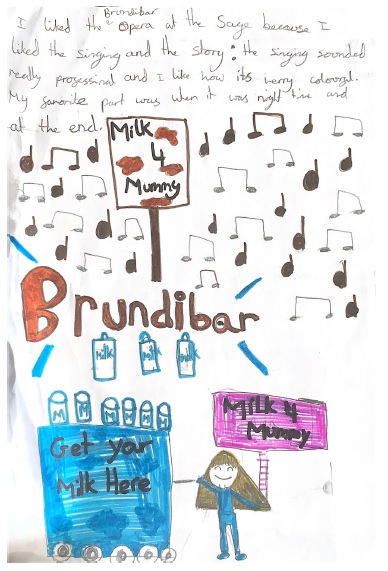 Brundibar
I liked the Opera at the Sage because I
liked the singing and the story: the singing sounded
really prosessinal and I like how its verry colourful.
My favorite part was when it was night time and
at the end.
Milk
4
Mummy
Brundibar
Milk
Milk
Milk
M M M M M M
Get your
Milk Here
Milk 4
Mummy